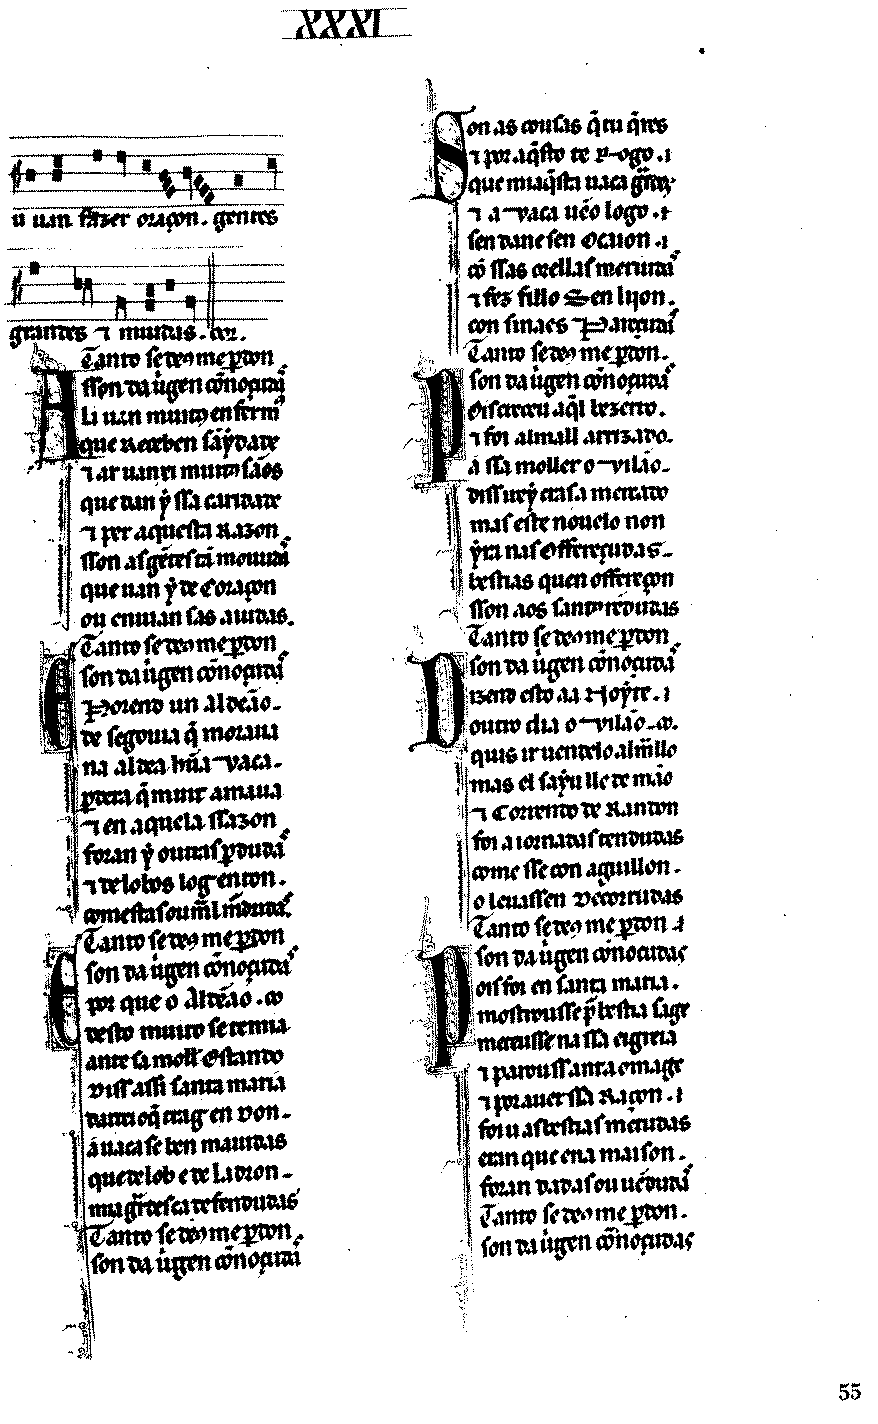 XXXI
u uan fazer oraçon. gentes
grandes ⁊ miudas. cor.
Tanto se deꝯ me ꝑdon
sson da uirgen cõnoçudã
Ali uan muitꝯ enfermꝯ
que Receben sãydade
⁊ ar uan y muitꝯ sãos
que dan ẏ ssa caridade
⁊ per aquesta Razon
sson as gẽtes tã mouudã
que uan ẏ de Coraçon
ou enuian sas aiudas.
Tanto se deꝯ me ꝑdon
son da uirgen cõnoçudã
E Porend un aldeão.
de segouia q̃ moraua
na aldea hũa vaca.
ꝑdera q̃ muit amaua
⁊ en aquela ssazon
foran ẏ outras ꝑdudã
⁊ de lobos log enton.
comestas ou ml̃ mõrdudã.
Tanto se deꝯ me ꝑdon
son da uirgen cõnoçudã
E por que o Aldeão. co
desto muito se temia
ante sa moll̃ Estando
Diss assi santa maria
dar ti q̃r eu en Don.
a uaca se ben maiudas
que de lob e de Ladron.
mia gr̃des ca defendudas
Tanto se deꝯ me ꝑdon
son da uirgen cõnoçudã
Son as cousas q̃ tu q̃res
⁊ por aq̃sto te Rogo. ⁊
que mi aq̃sta uaca
⁊ a vaca uẽo logo. ⁊
sen dan e sen Ocaion. ⁊
cõ ssas orellas merudã
⁊ fez fillo Sen lijon.
con sinaes Parçudã
Tanto se deꝯ me ꝑdon.
son da uirgen cõnoçudã
Pois creceu aq̃l bezerro.
⁊ foi almall arrizado.
a ssa moller o vilão.
diss ir ey cras a mercado
mas este nouelo non
ẏra nas offereçudas.
bestias quen offereçon
sson aos santꝯ rendudas
Tanto se deꝯ me ꝑdon
son da uirgen cõnoçudã
Dizend esto aa Noyte. ⁊
outro dia o vilão. co.
quis ir uendelo almallo
mas el sayu lle de mão
⁊ Correndo de Randon
foi a iornadas tendudas
come sse con aguillon.
o leuassen decorrudas
Tanto se deꝯ me ꝑdon. ⁊
son da uirgen cõnoçudas
Pois foi en santa maria.
mostrousse ꝑ bestia sage
meteusse na ssa eigreia
⁊ parouss ant a omage
⁊ por auer ssa Raçon. ⁊
foi u as bestias metudas
eran que ena maison.
foran dadas ou uẽdudã
Tanto se deꝯ me ꝑdon.
son da uirgen cõnoçudas
55